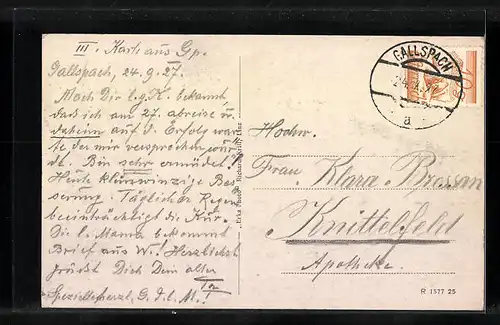 III. Karte aus Gp.
Gallspach, 24.9.27.
Mach Dir l. g. K. bekannt,
dass ich am 27. abreise u.
daheim auf d. Erfolg war-
te der mir versprochen wur-
de. Bin sehr ermüdet!
Heute klein winzige Bes-
serung. Täglicher Regen
beeinträchtigt die Kur.
Die l. Mama bekommt
Brief aus W.! Herzlichst
grüsst Dich Dein alter
GALLSPACH
a
10
Hochw.
Frau Klara Brossan
Knittelfeld
Apotheke.
R 1577 25